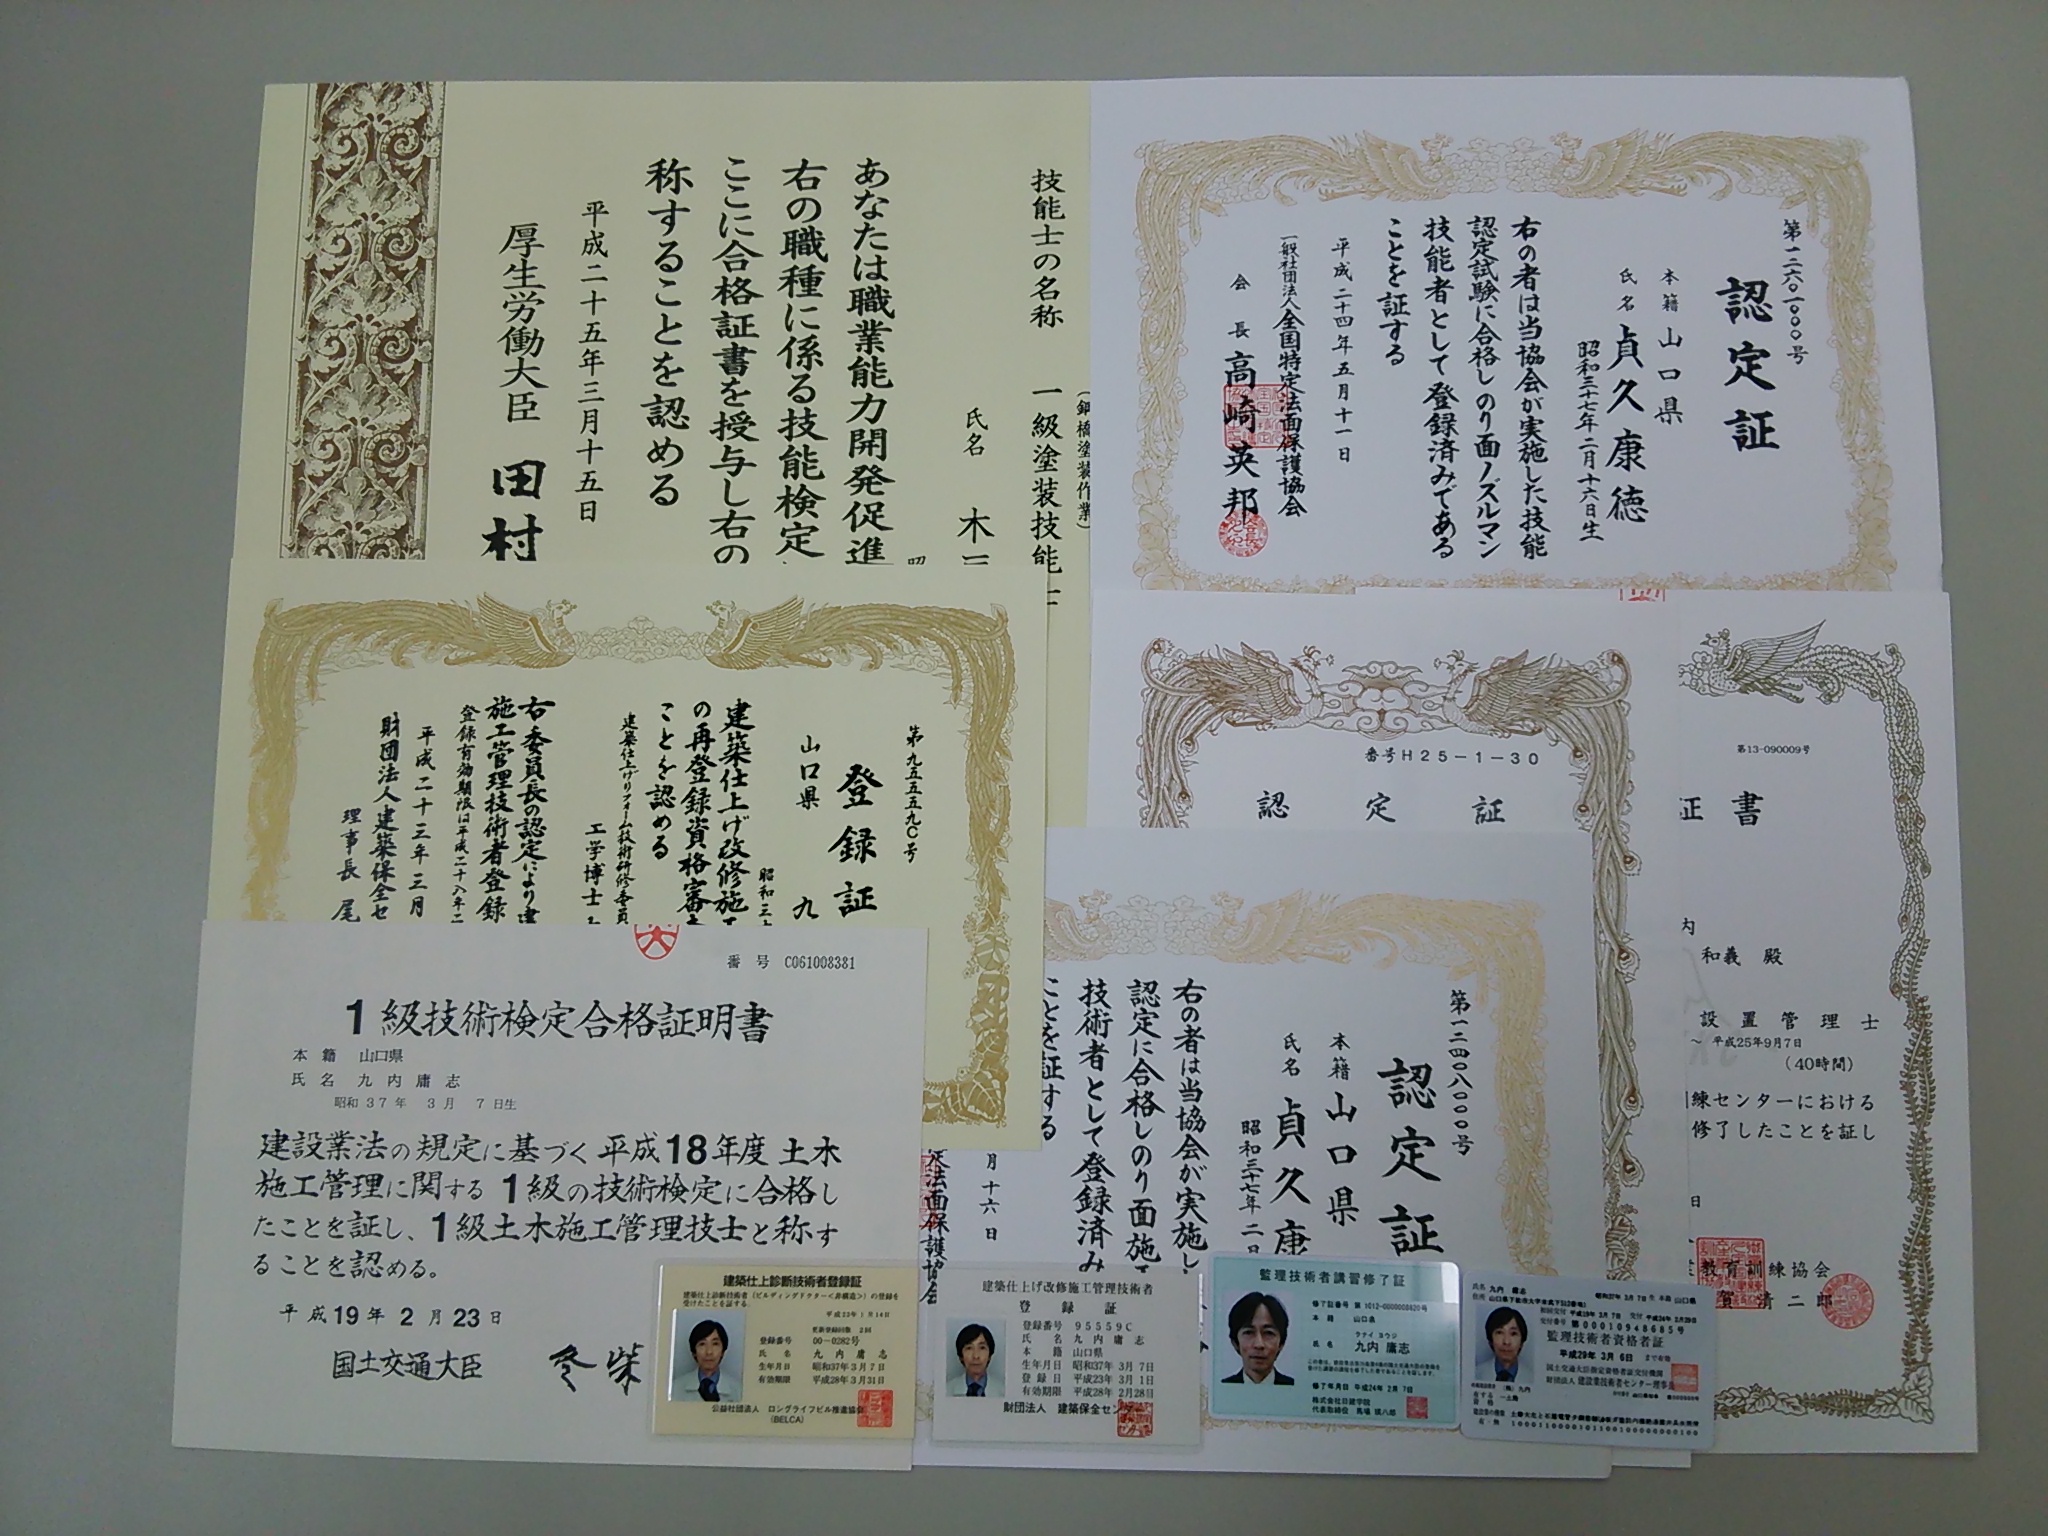 技能士の名称
一級塗装技能士
（鋼橋塗装作業）
氏名
あなたは職業能力開発促進
右の職種に係る技能検定
ここに合格証書を授与し右の
称することを認める
平成二十五年三月十五日
厚生労働大臣 田村
第一二六〇一〇〇〇号
認定証
本籍 山口県
氏名 貞久康徳
昭和三十七年二月十六日生
右の者は当協会が実施した技能
認定試験に合格しのり面ノズルマン
技能者として登録済みである
ことを証する
平成二十四年五月十一日
一般社団法人全国特定法面保護協会
会長 高崎英邦
第九五五五九〇号
登録証
山口県 九
昭和三十
建築仕上げ改修施工
の再登録資格審
ことを認める
建築仕上げリフォーム技術研修委員
工学博士
右委員長の認定により建
施工管理技術者登録
登録有効期限は平成二十八年二
平成二十三年三月
財団法人建築保全セ
理事長 尾
番号H25-1-30
認定証
第13-090009号
証書
内
和義 殿
設置管理士
～ 平成25年9月7日
（40時間）
練センターにおける
修了したことを証し
日
教育訓練協会
賀 清二郎
番号 C061008381
1級技術検定合格証明書
本籍 山口県
氏名 九内庸志
昭和37年 3月 7日生
建設業法の規定に基づく平成18年度 土木
施工管理に関する 1級の技術検定に合格し
たことを証し、1級土木施工管理技士と称す
ることを認める。
平成19年2月23日
国土交通大臣 冬柴
第一二四〇八〇〇〇号
認定証
本籍 山口県
氏名 貞久康
昭和三十七年二
右の者は当協会が実施し
認定に合格しのり面施
技術者として登録済み
ことを証する
月十六日
定法面保護協会
建築仕上診断技術者登録証
建築仕上診断技術者（ビルディングドクター＜非構造＞）の登録を
受けたことを証する
平成23年1月14日
更新登録回数 2回
登録番号 00-0282号
氏名 九内庸志
生年月日 昭和37年3月7日
有効期限 平成28年3月31日
公益社団法人 ロングライフビル推進協会
（BELCA）
建築仕上げ改修施工管理技術者
登録証
登録番号 95559C
氏名 九内庸志
本籍 山口県
生年月日 昭和37年 3月 7日
登録日 平成23年 3月 1日
有効期限 平成28年 2月28日
財団法人 建築保全センター
監理技術者講習修了証
本籍 山口県
氏名 九内 庸志
修了年月日 平成24年 2月 7日
株式会社日建学院
氏名 九内 庸志
昭和37年 3月 7日生 本籍 山口県
第00010948685号
監理技術者資格者証
平成29年 3月 6日 まで有効
国土交通大臣指定資格者証交付機関
財団法人 建設業技術者センター理事長